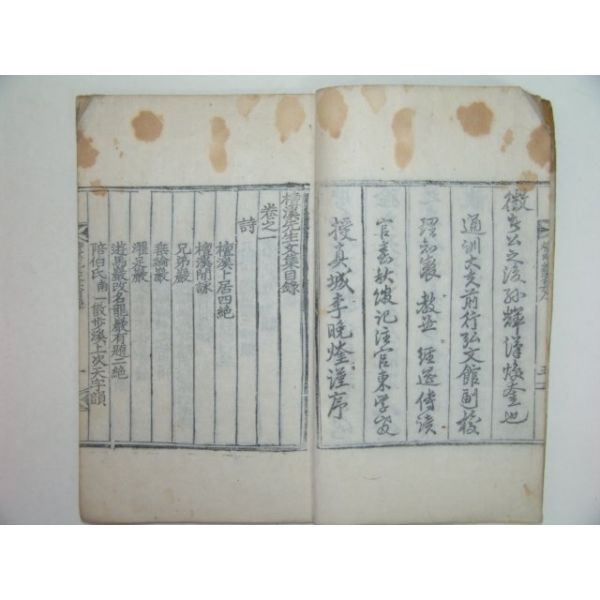 徵生公之後孫輝漢煥奎也
通訓大夫前行弘文館副校
理知製 教並 經筵侍讀
官春秋館記注官東學敎
授真城李晚煃謹序
樟溪先生文集目錄
卷之一
詩
樟溪卜居四絶
樟溪閒詠
兄弟巖
乘輪巖
濯足巖
遊馬巖改名龍巖有題二絶
陪伯氏南一散步溪上次天字韻